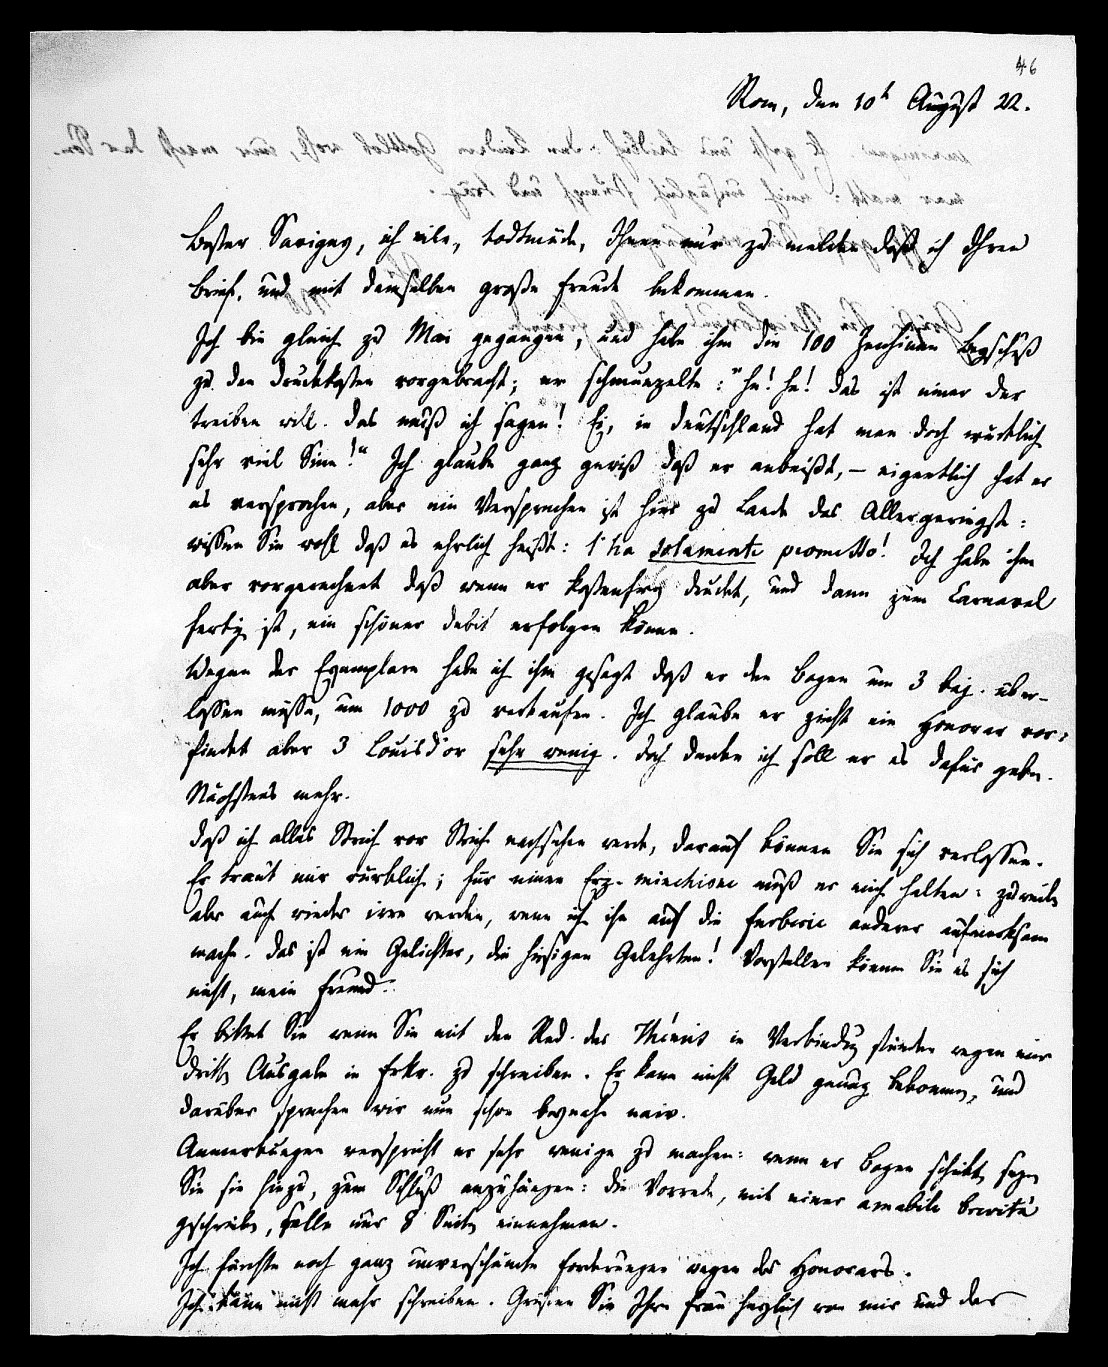 46
Rom, den 10t August 22.
Bester Savigny, ich eile, todtmüde, Ihnen nur zu melden daß ich Ihren
Brief, und mit demselben große Freude bekommen.
Ich bin gleich zu Mai gegangen, und habe ihm die 100 Zechinen Beyschuß
zu den Druckkosten vorgebracht; er schmunzelte: "he! he! das ist einer der
treiben will. das muß ich sagen! Ei, in Deutschland hat man doch wirklich
sehr viel Sinn!" Ich glaube ganz gewiß daß er anbeißt, – eigentlich hat er
es versprochen, aber ein Versprechen ist hier zu Lande das Allergeringste:
wissen Sie wohl daß es ehrlich heißt: l'ha solamente promesso! Ich habe ihm
aber vorgerechnet daß wenn er kostenfrey druckt, und dann zum Carnaval
fertig ist, ein schöner debit erfolgen könne.
Wegen der Exemplare habe ich ihm gesagt daß er den Bogen um 3 baj. über-
lassen müsse, um 1000 zu verkaufen. Ich glaube er zieht ein Honorar vor,
findet aber 3 Louisd'or sehr wenig. doch denke ich soll er es dafür geben.
Nächstens mehr.
daß ich alles Strich vor Strich nachsehen werde, darauf können Sie sich verlassen.
Er traut mir wirklich; für einen Erz-minchione muß er mich halten: zuweilen
aber auch wieder irre werden, wenn ich ihn auf die furberie anderer aufmerksam
mache. das ist ein Gelichter, die hiesigen Gelehrten! Vorstellen können Sie es sich
nicht, mein Freund.
Er bittet Sie wenn Sie mit den Red. der Thémis in Verbindung stünden wegen einer
dritten Ausgabe in Frkr. zu schreiben. Er kann nicht Geld genug bekommen, und
darüber sprechen wir nun schon beynahe naiv.
Anmerkungen verspricht er sehr wenige zu machen: wenn er Bogen schickt, sagen
Sie sie hinzu, zum Schluß anzuhängen: die Vorrede, mit einer amabile brevità
geschrieben, solle nur 8 Seiten einnehmen.
Ich fürchte noch ganz unverschämte Forderungen wegen des Honorars.
Ich kann nicht mehr schreiben. Grüßen Sie Ihre Frau herzlich von mir und der